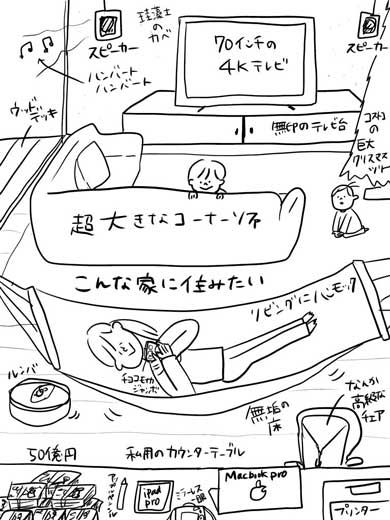 スピーカー
珪藻土
の
カベ
70インチの
4Kテレビ
スピーカー
ハンバート
ハンバート
ウッド
デッキ
無印のテレビ台
コストコ
の
巨大
クリスマス
ツリー
超大きなコーナーソファ
こんな家に住みたい
リビングにハンモック
チョコモナカ
ジャンボ
ルンバ
無垢の
床
なんか
高級な
チェア
50億円
私用のカウンターテーブル
アップルペンシル
ipad
pro
ミラーレス
一眼
Macbook pro
プリンター